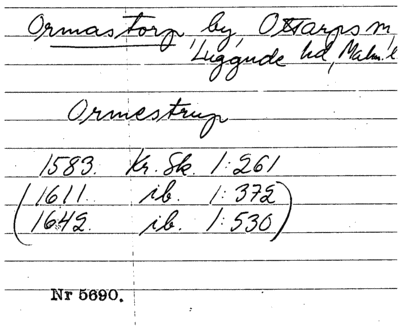 Ormastorp by, Ottarps sn,
Luggude hd, Malm. l.
Ormestrup
1583. Kr. Sk. 1:261
(1611. ib. 1:372
1642. ib. 1:530)
Nr 5690.